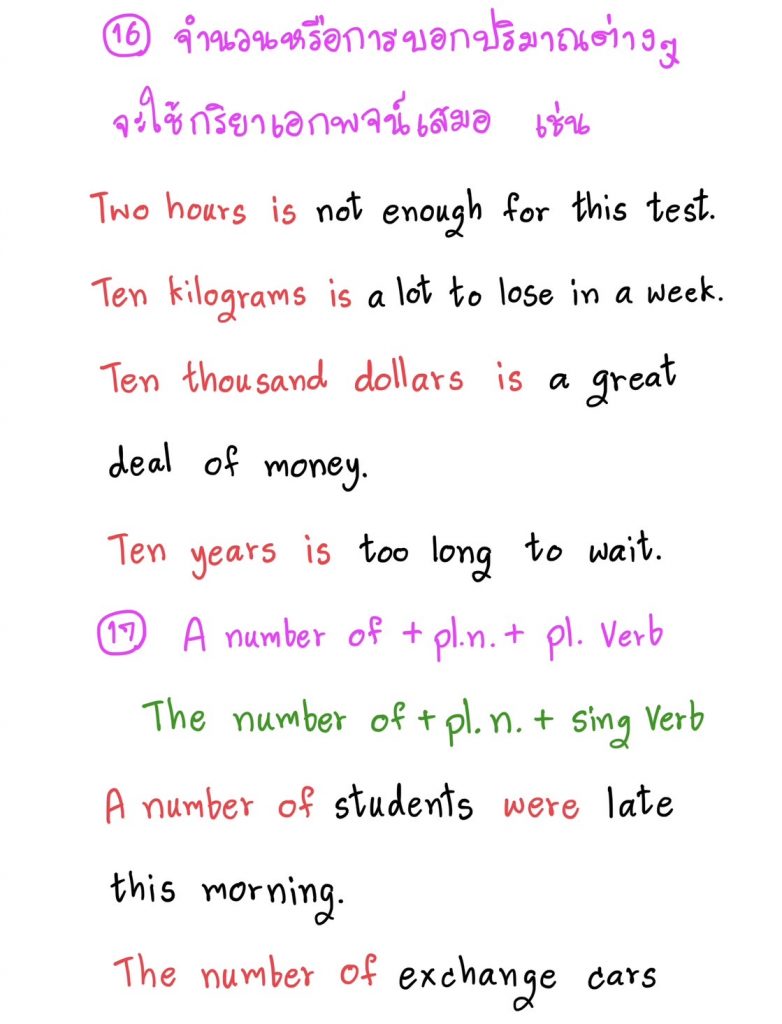 16 จำนวนหรือการบอกปริมาณต่างๆ
จะใช้กริยาเอกพจน์เสมอ เช่น
Two hours is not enough for this test.
Ten kilograms is a lot to lose in a week.
Ten thousand dollars is a great
deal of money.
Ten years is too long to wait.
17 A number of + pl.n. + pl. Verb
The number of + pl. n. + sing Verb
A number of students were late
this morning.
The number of exchange cars